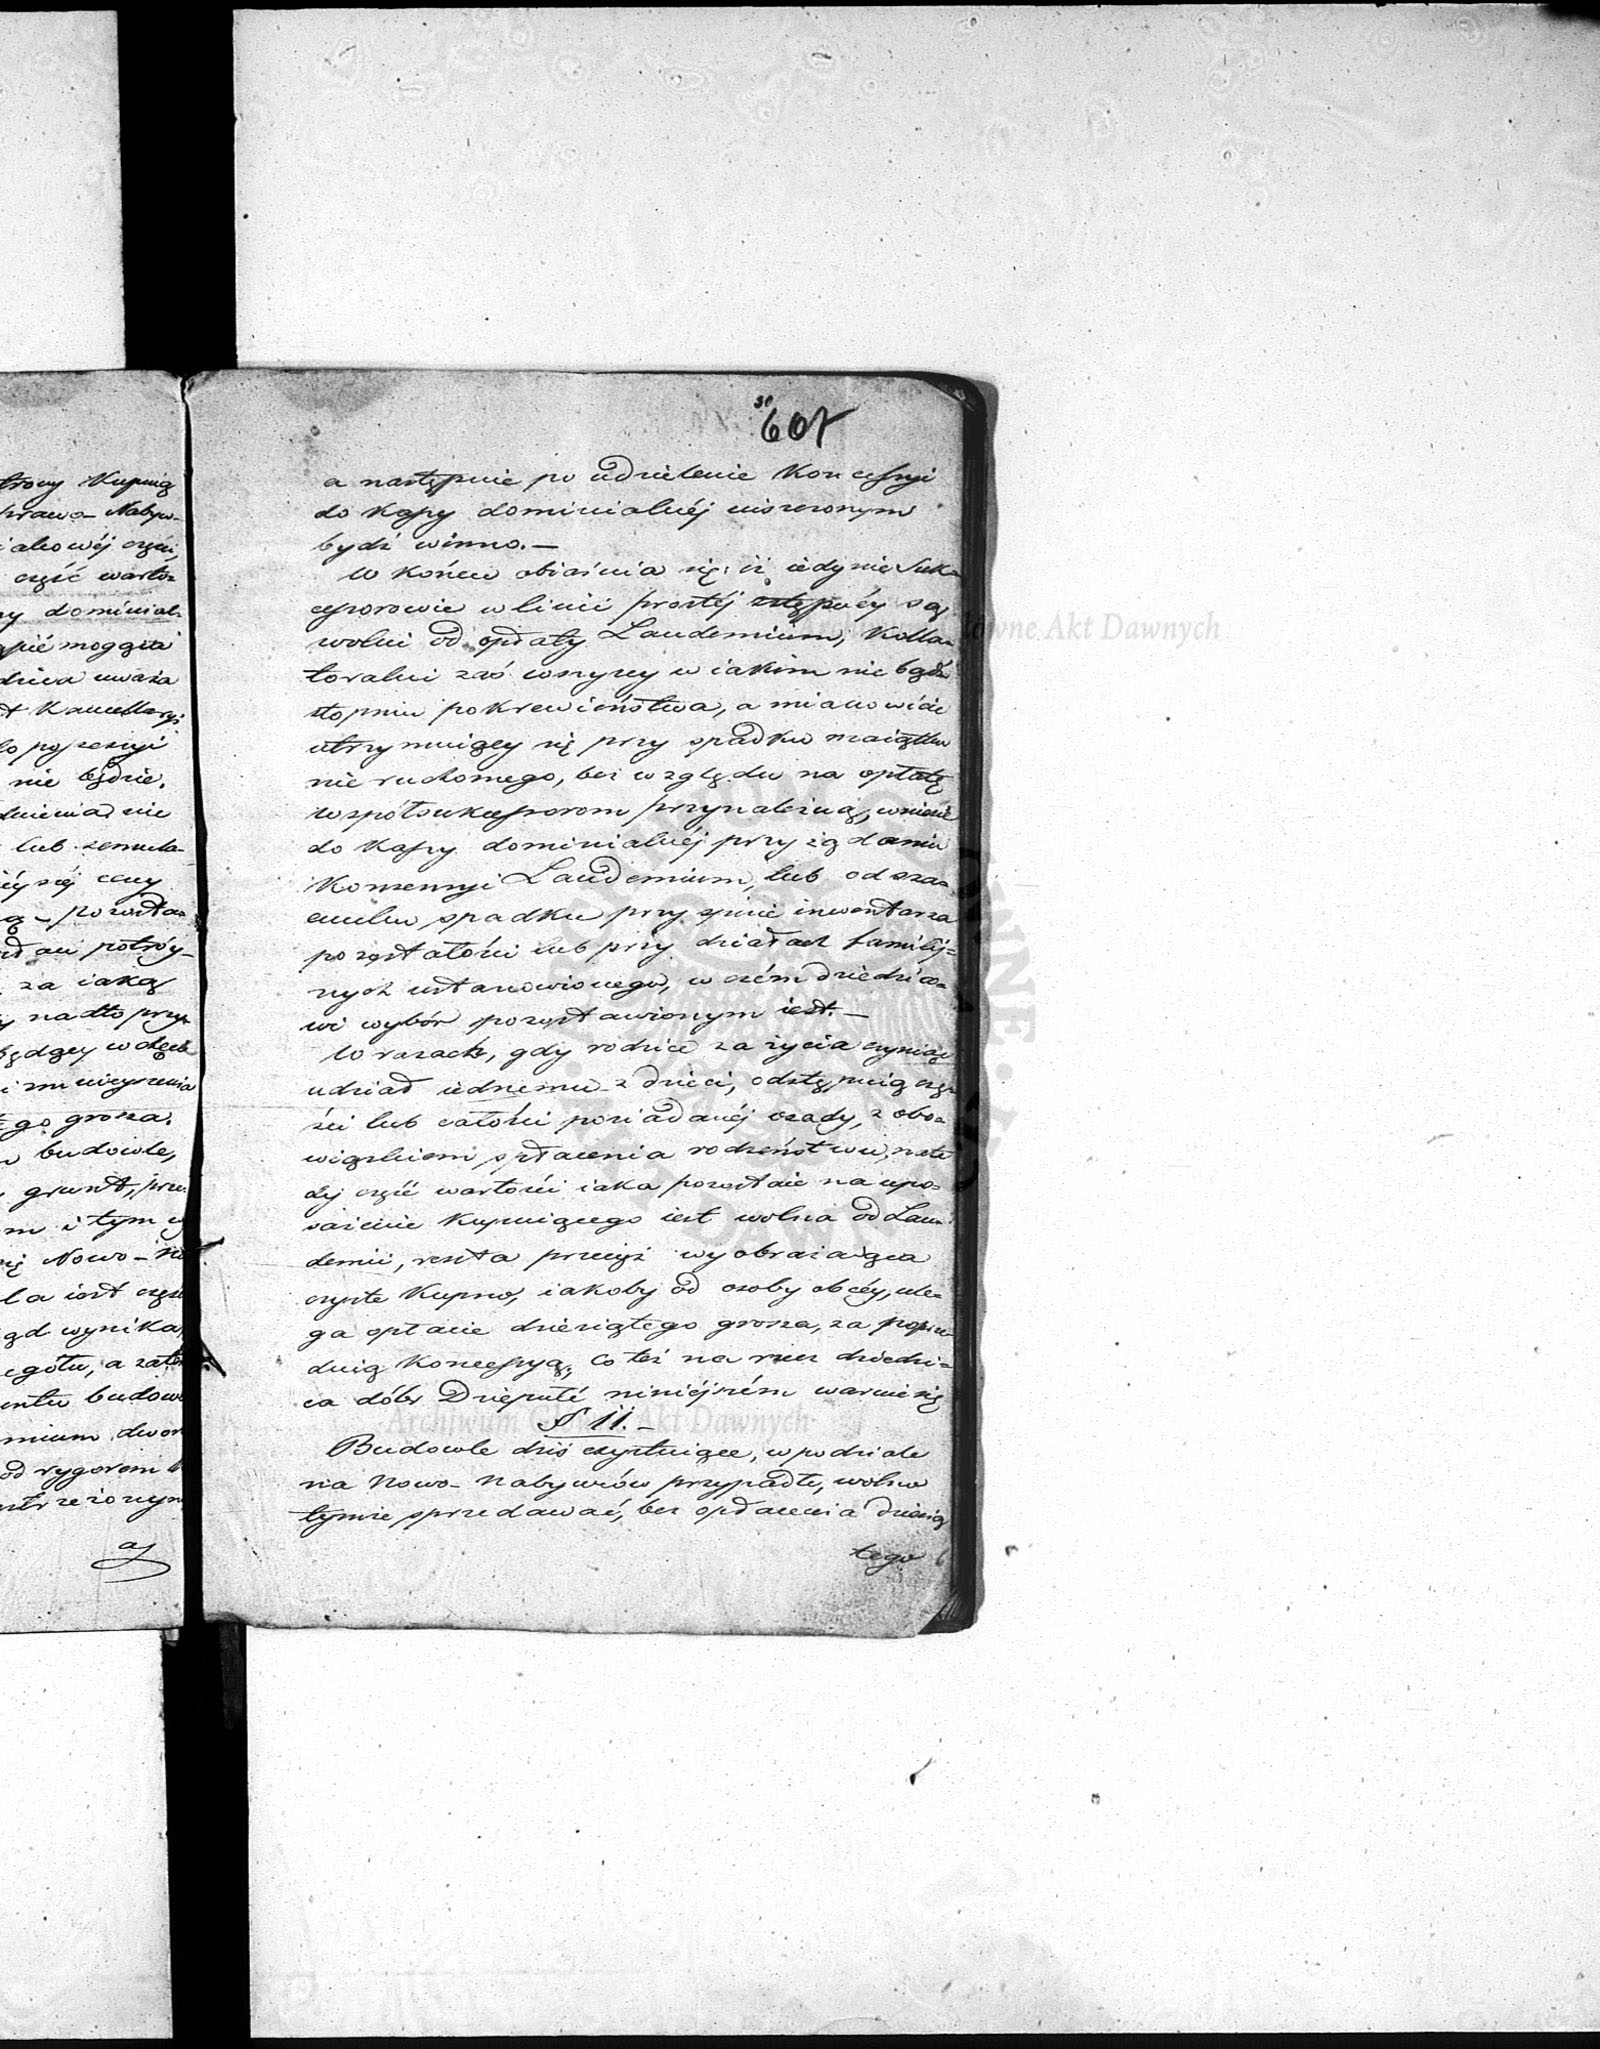 trony Kupuią
prawo Nabyw-
iałowéj częśi,
część wartoś
ny dominial-
ąpić mogąca
dzica uważa
t Kancellaryi
do possessyi
nie będzie.
dnienia nie
lub zamia-
éyszéj ceny
pozosta-
potróy-
za iaką
nadto przy-
będący w chęci
i zmnieyszenia
go grosza.
budowle,
grunt, prze
m i tym
się Nowo-
la iest częś
ąd wynika,
ogółu, a zatém
entu budow
mium dwor
od rygorem
strzeżonym
a
30
607
a następnie po udzielenie Koncessyi
do Kassy dominialnéj uiszczonym
bydź winno.—
W końcu obiaśnia się, iż iedynie Suk-
cessorowie w linii prostéj zstępnéy są
wolni od opłaty Laudemium, Kolla-
teralni zaś wszyscy w iakim nie bądź
stopniu pokrewieństwa, a mianowicie
utrzymuiący się przy spadku maiątku
nieruchomego, bez względu na opłatę
współsukcessorom przynależną, wnieść
do Kassy dominialnéj przy żądaniu
Konsensyi Laudemium, lub od sza-
cunku spadku przy spisie inwentarza
pozostałości lub przy działach familij-
nych ustanowionego, w czém dziedzico-
wi wybór pozostawionym iest.—
W razach, gdy rodzice za życia czyniąc
udział iednemu z dzieci, odstępuią czę-
ści lub całości posiadanéj osady, z obo-
wiązkiem spłacenia rodzeństwu, nate
dy część wartości iaka pozostaie na upo-
sażenie Kupuiącego iest wolna od Lau-
demii, reszta przecięż wyobrażaiąca
czyste Kupno, iakoby od osoby obcéy, ule-
ga opłacie dziesiątego grosza, za poprze-
dnią Koncessyą, co też na rzecz dziedzi-
ca dóbr Dziepułć niniéjszém waruie się
§ 11.—
Budowle dziś exystuiące, w podziale
na Nowo-Nabywców przypadłe, wolno
tymże sprzedawać, bez opłacenia dziesią
tego
Archiwum Główne Akt Dawnych
Archiwum Główne Akt Dawnych